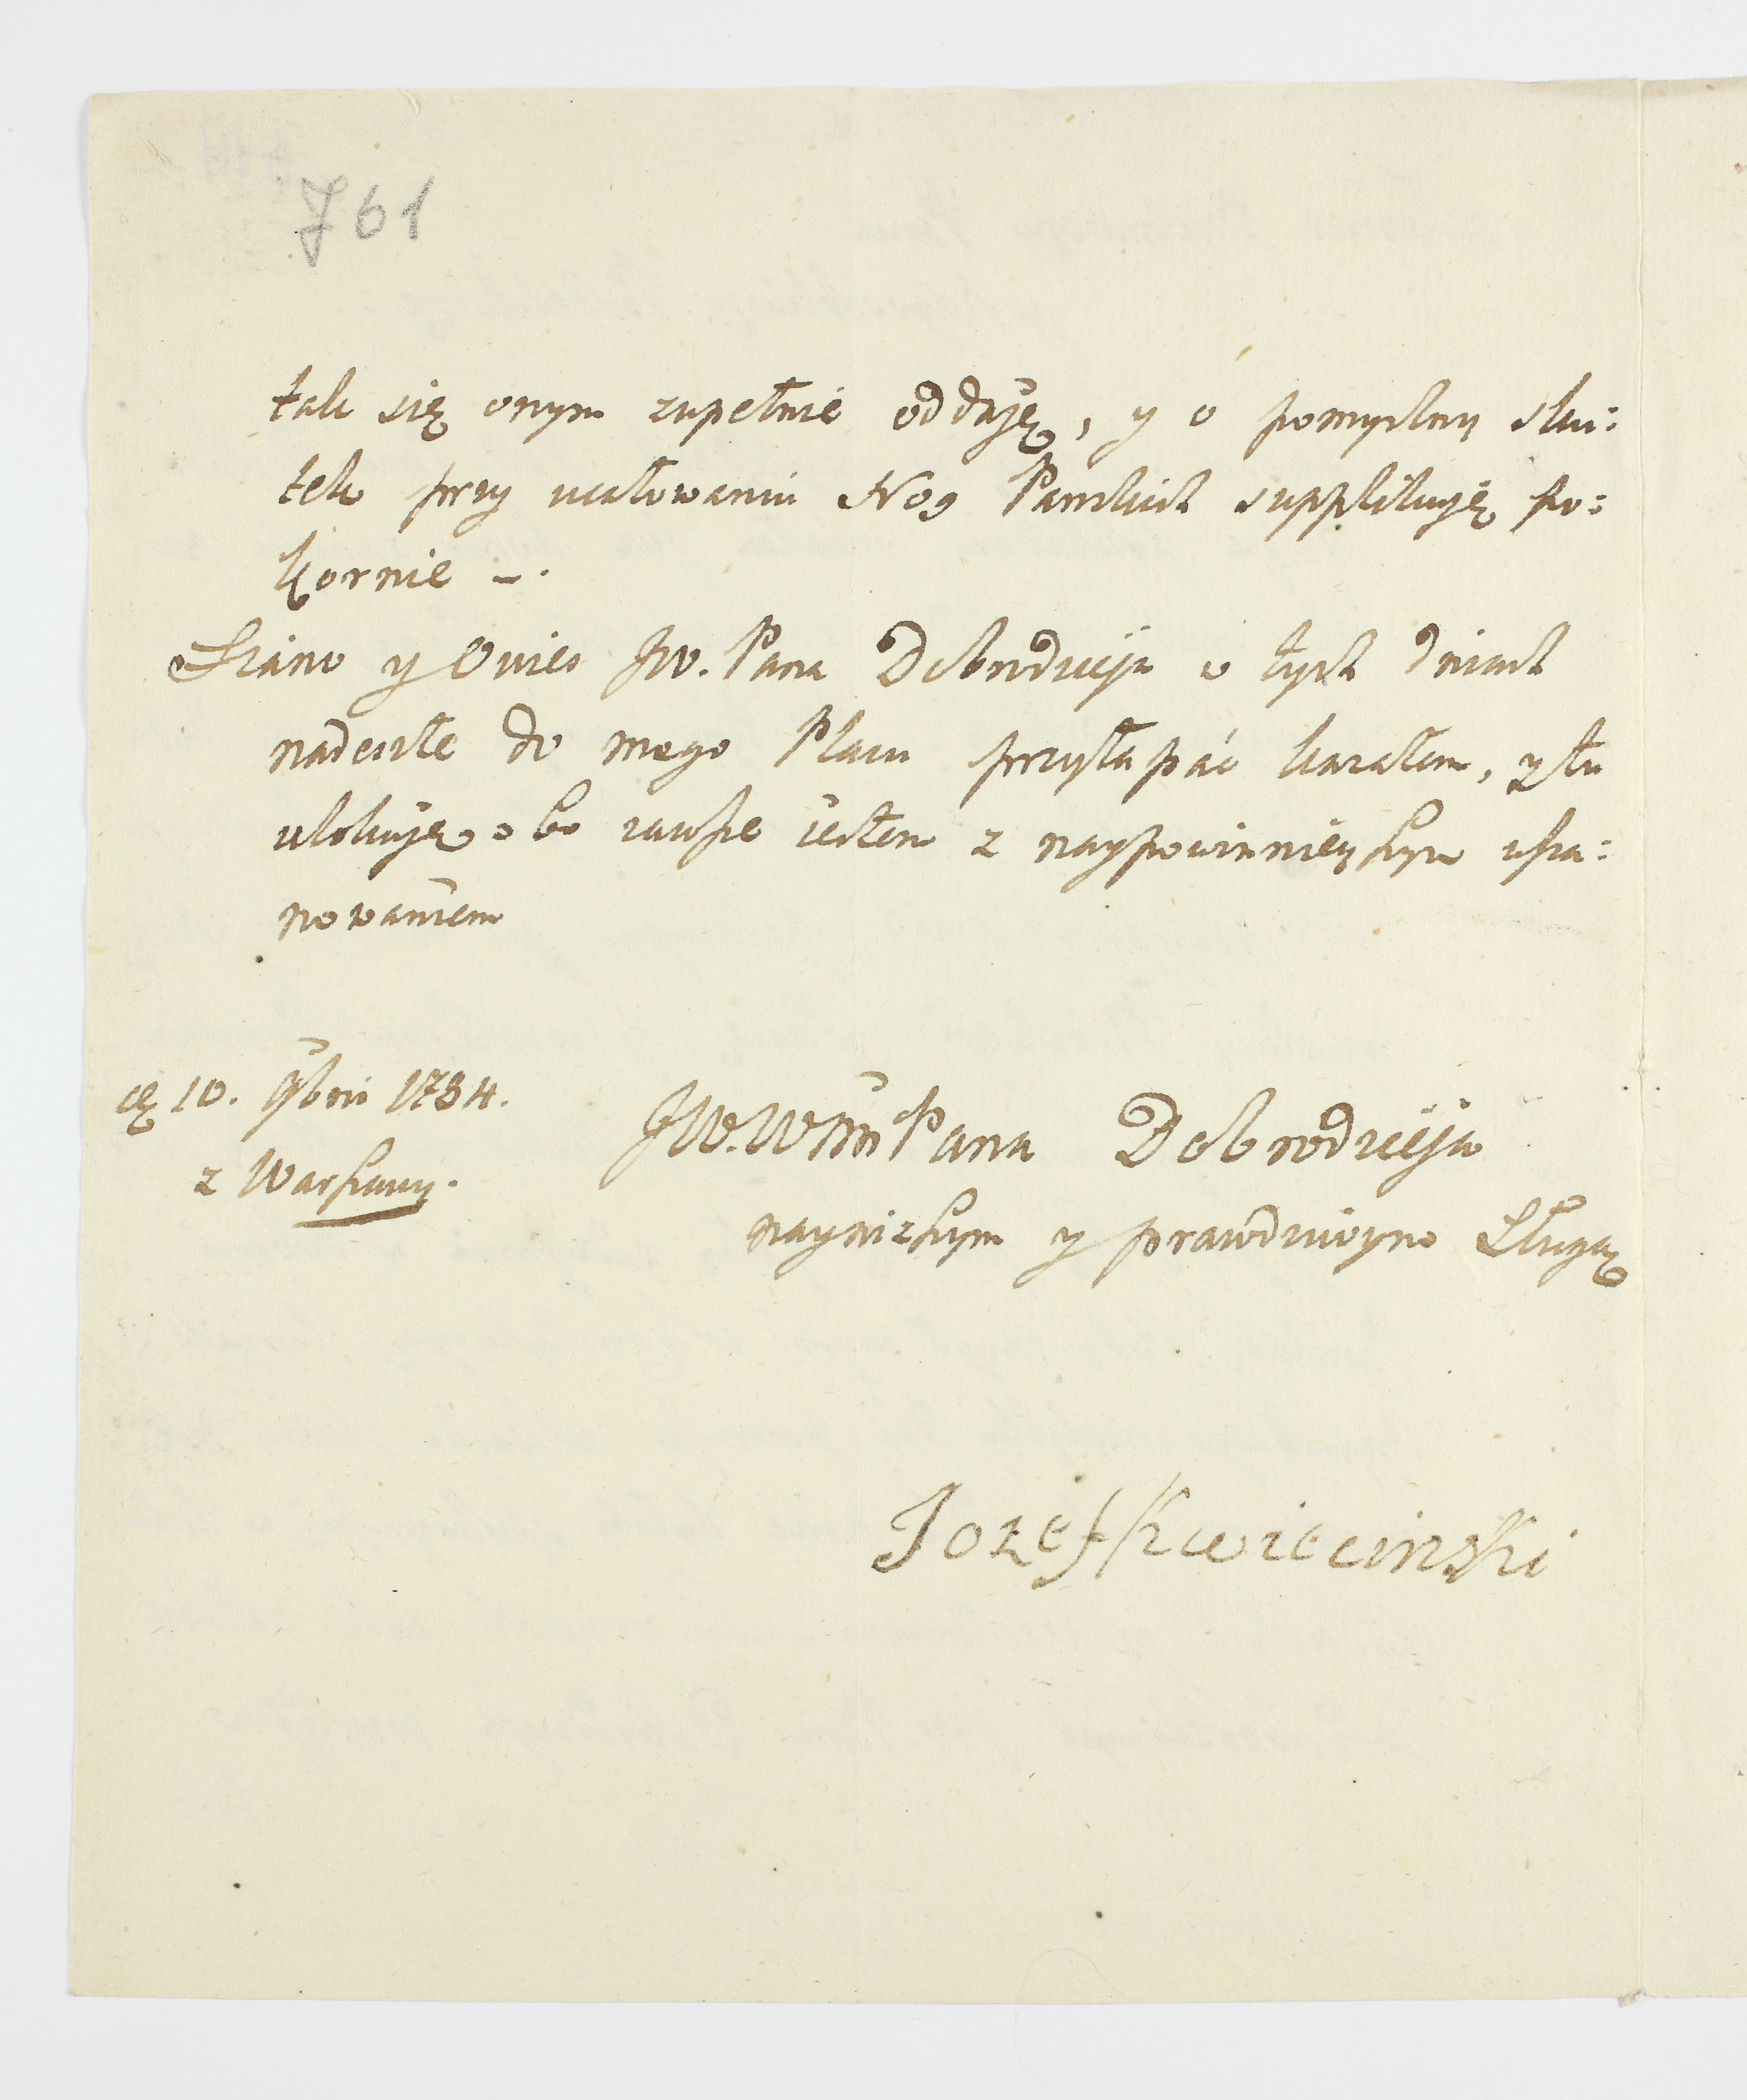 761
tak się onym zupełnie oddaję, y o pomyslny sku:
tek przy ucałowaniu Nog Panskich supplikuję po:
kornie -.
Siano y Owies JW. Pana Dobrodzieja w tych dniach
nadeszłe do mego Placu przystapać kazałem, y tu
ulokuję. bo zawsze iestem z naypowinnieyszym usza:
nowaniem
10. 9bris 1784.
z Warszawy.
JW. WMPana Dobrodzieja
nayniższym y prawdziwym Sługą
Jozef Kwiecinski